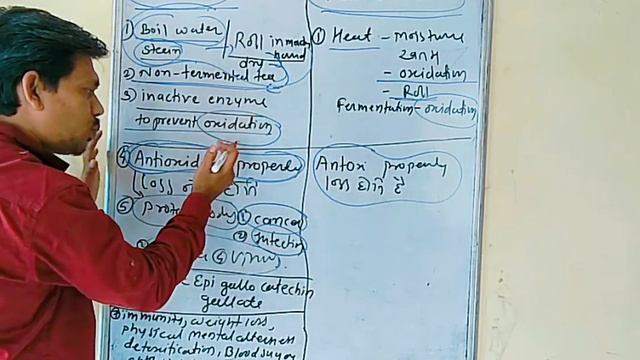 ① Boil water
Steam
Roll in machine
hand
dry
2) Non-fermented tea
3) inactive enzyme
to prevent oxidation
④ Antioxid property
loss नहीं होती
⑤ Protect body ① cancer
② Infection
& Virus
Epi gallo catechin
gallate
⑦ immunity, weight loss,
physical mental alertness
detoxification, Blood sugar
① Heat - moisture
- oxidation
- Roll
Fermentation - oxidation
Antox property
loss होती है